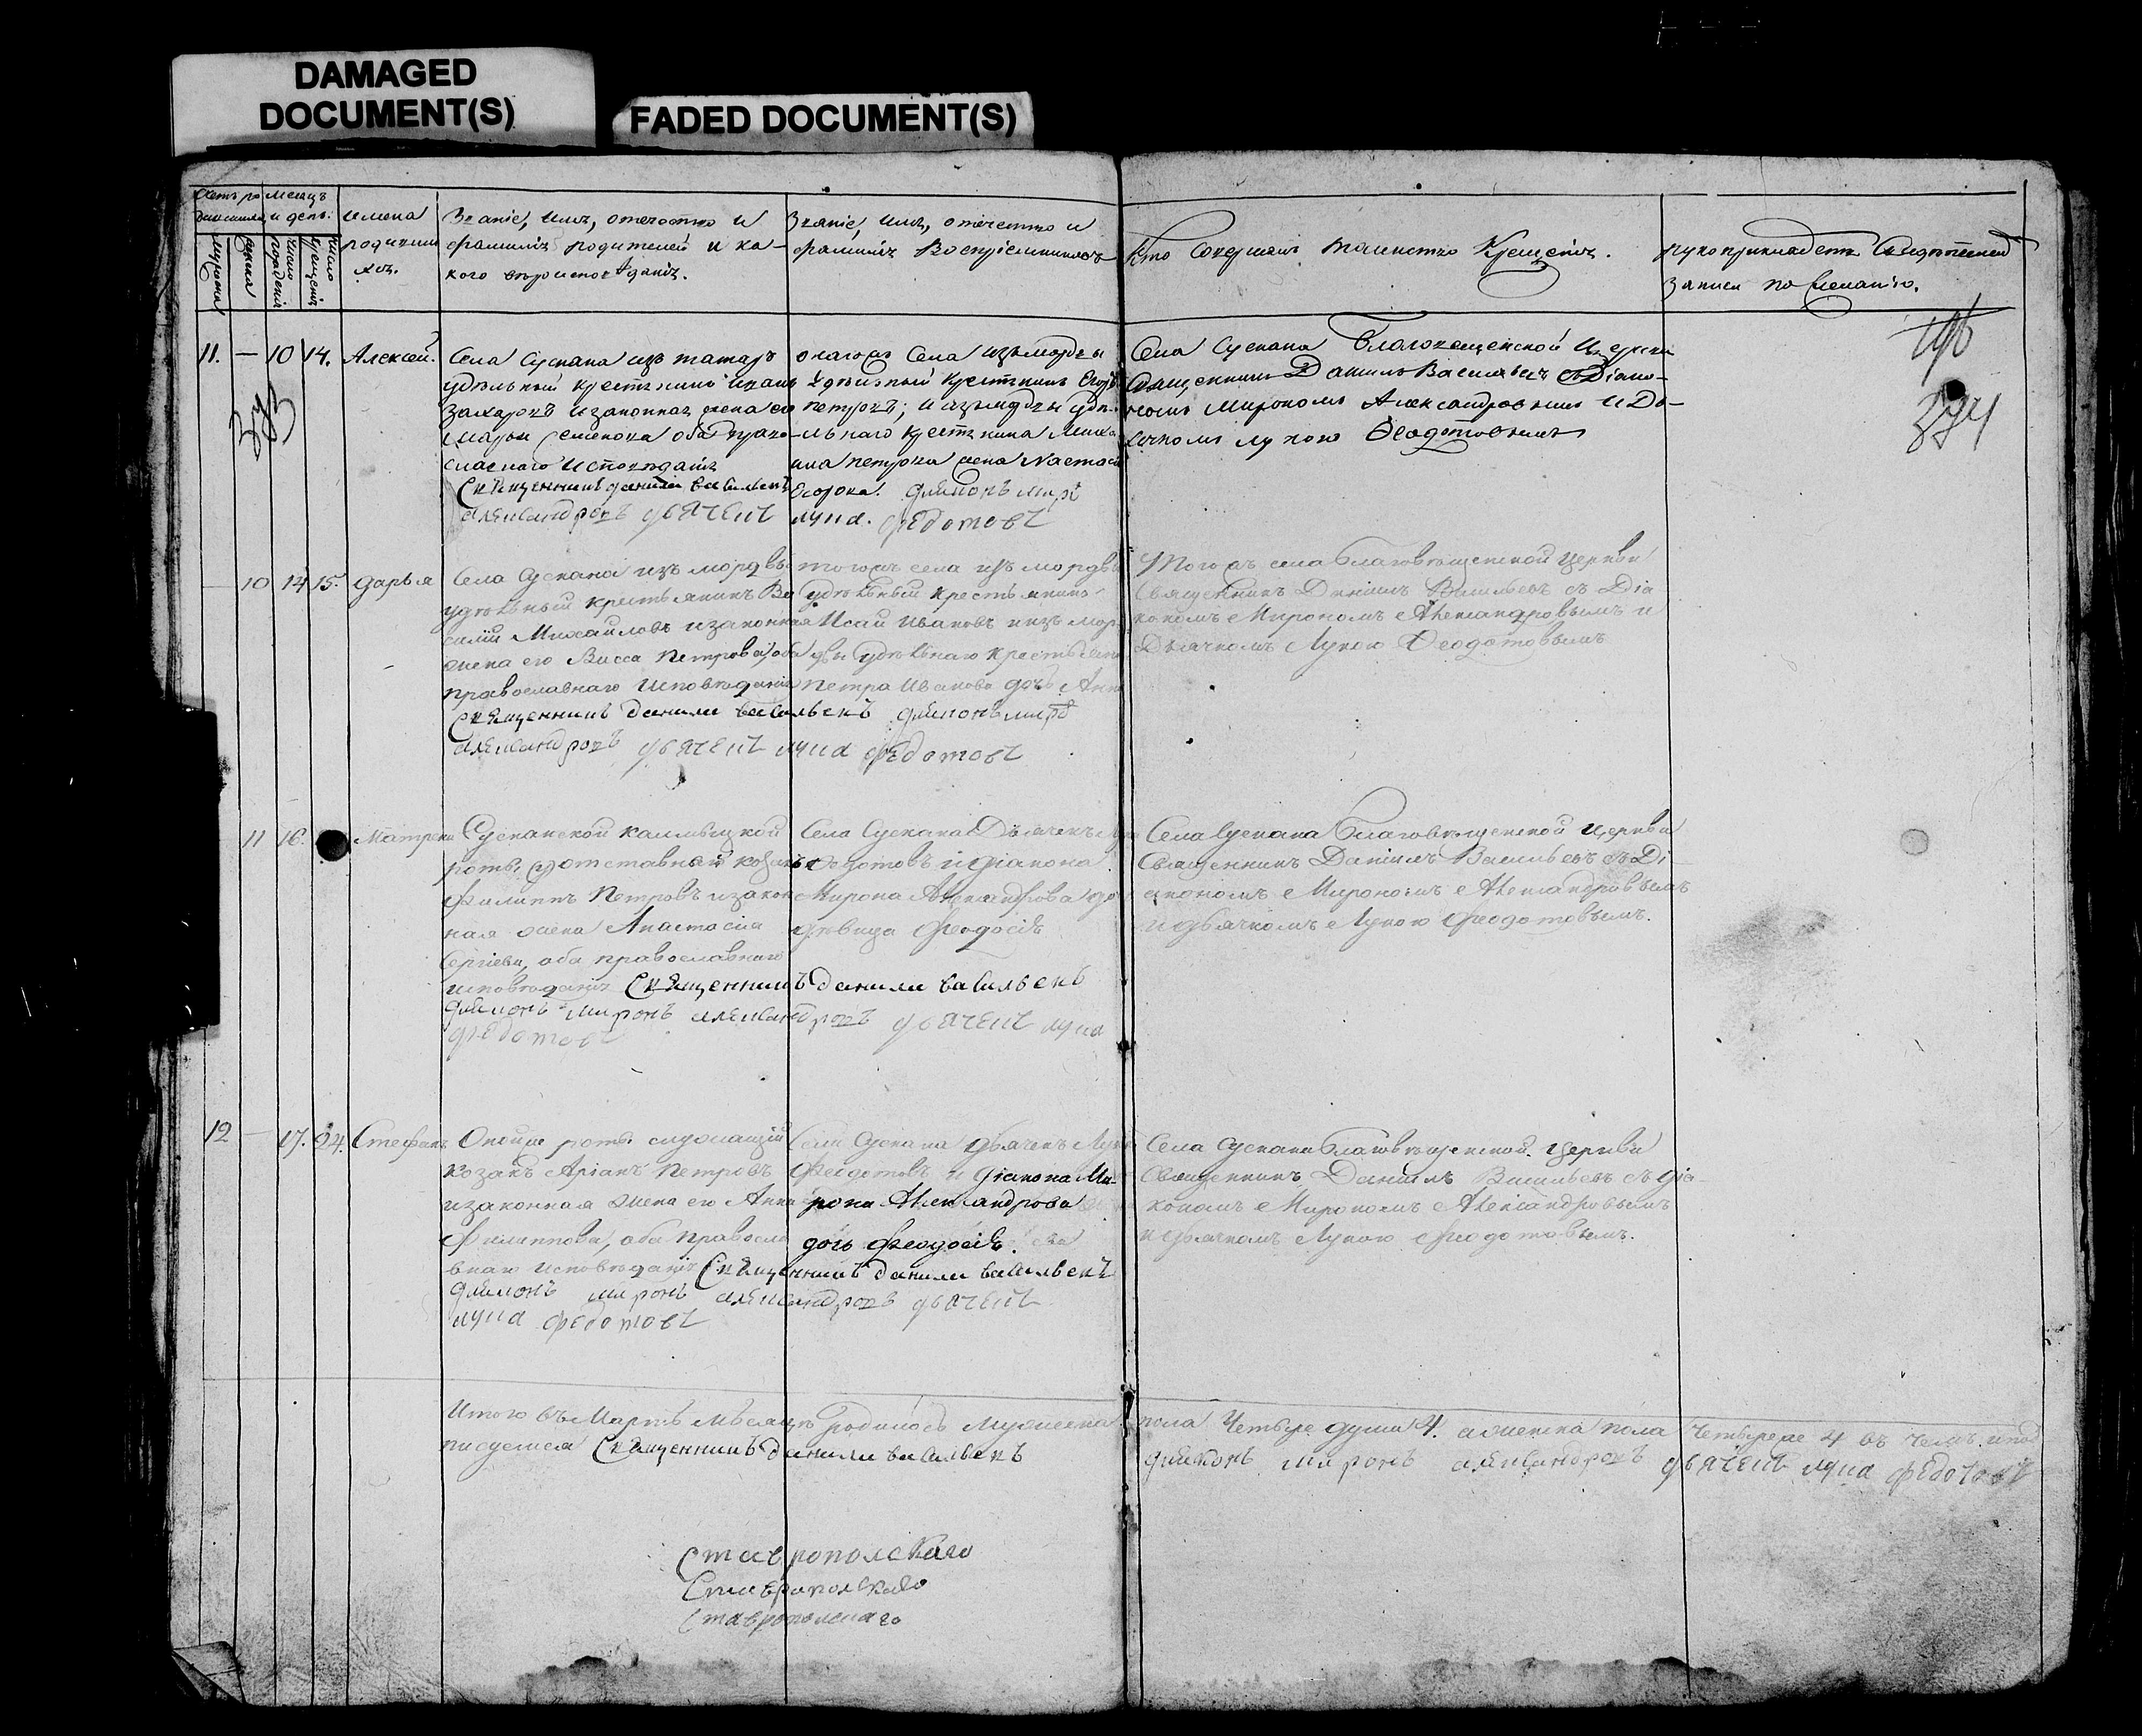 DAMAGED
DOCUMENT(S)
FADED DOCUMENT(S)
Счетъ ро Месяцъ
и день.
мужска
женска
число рожденія
число крещенія
имена
родивших
ся.
Званіе, имя, отечество и
фамилія родителей и ка-
кого вероисповѣданія.
Званіе, имя, отечество и
фамилія Воспріемниковъ
Кто Совершалъ таинство Крещенія.
рукоприкладство Свидѣтелей
записи по желанію.
373
374
11. — 10 14. Алексей.
Села Сускана изъ татаръ
удѣльный крестьянинъ Иванъ
Захаровъ и законная жена его
Марья Семенова оба право-
славнаго исповѣданія
Священникъ данилъ васильевъ
александровъ дьячекъ
онагожъ Села изъ мордвы
удѣльный крестьянинъ Егоръ
петровъ; и изъ мордвы удѣ-
льнаго крестьянина Миха
ила петрова жена Настасья
Егорова. диаконъ миро
лука. федотовъ
Села Сускана Благовещенской Церкви
Священникъ Данилъ Васильевъ съ Діако-
номъ Мирономъ Александровымъ и Дь-
ячкомъ лукою Феодотовымъ
10 14 15. дарья
Села Сускана изъ мордвы
удѣльный крестьянинъ Ва
силій Михайловъ и законная
жена его Васса Петрова, оба
православнаго исповѣданія
Священникъ данилъ васильевъ диаконъ миро
александровъ дьячекъ лука федотовъ
тогожъ села изъ мордвы
удѣльный крестьянинъ
Исай Ивановъ и изъ мор
двы удѣльнаго крестьянина
Петра Иванова дочь Анна
Тогожъ села Благовѣщенской Церкви
Священникъ Данилъ Васильевъ съ Діа
кономъ Мирономъ Александровымъ и
Дьячкомъ Лукою Феодотовымъ
11 16. Матрена
Сусканской калмыцкой
роты, отставный козакъ
Филиппъ Петровъ и закон
ная жена Анастасія
Сергіева, оба православнаго
исповѣданія Священникъ данилъ васильевъ
диаконъ миронъ александровъ дьячекъ лука
федотовъ
Села Сускана Дьячекъ Лука
Федотовъ и діакона
Мирона Александрова до
дѣвица Феодосія
Села Сускана Благовѣщенской церкви
Священникъ Данилъ Васильевъ съ Ді
акономъ Мирономъ Александровымъ
и дьячкомъ Лукою Феодотовымъ.
12 — 17. 24. Стефанъ
Оной же роты служащій
козакъ Аріанъ Петровъ
и законная жена его Анна
Филиппова, оба правосла
внаго исповѣданія Священникъ данилъ васильевъ
диаконъ миронъ александровъ дьячекъ
лука федотовъ
Села Сускана дьячекъ Лука
Феодотовъ и діакона Ми-
рона Александрова
дочь Феодосія.
Села Сускана Благовѣщенской церкви
Священникъ Данилъ Васильевъ съ діа-
кономъ Мирономъ Александровымъ
и дьячкомъ Лукою Феодотовымъ.
Итого въ Мартѣ мѣсяцѣ родилось мужеска пола четыре души 4. а женска пола четыре же 4 въ чемъ и под
писуемся Священникъ данилъ васильевъ диаконъ миронъ александровъ дьячекъ лука федотовъ
Ставропольскаго
Ставропольскаго
Ставропольскаго